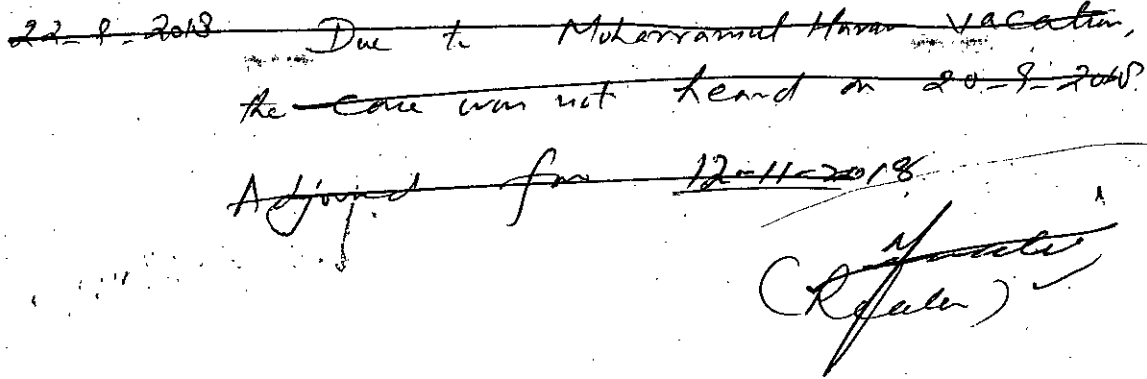 22-9-2018 Due to Moharramul Haram vacation,
the case was not heard on 20-9-2018.
Adjourned for 12-11-2018
(Reader)